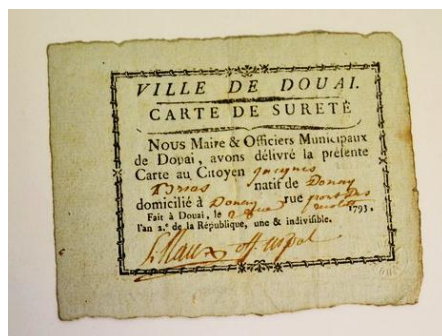 VILLE DE DOUAI.
CARTE DE SURETÉ
NOUS Maire & Officiers Municipaux
de Douai, avons délivré la présente
Carte au Citoyen
natif de Douay
domicilié à Douay rue
Fait à Douai, le 1793,
l'an 2.e de la République, une & indivisible.